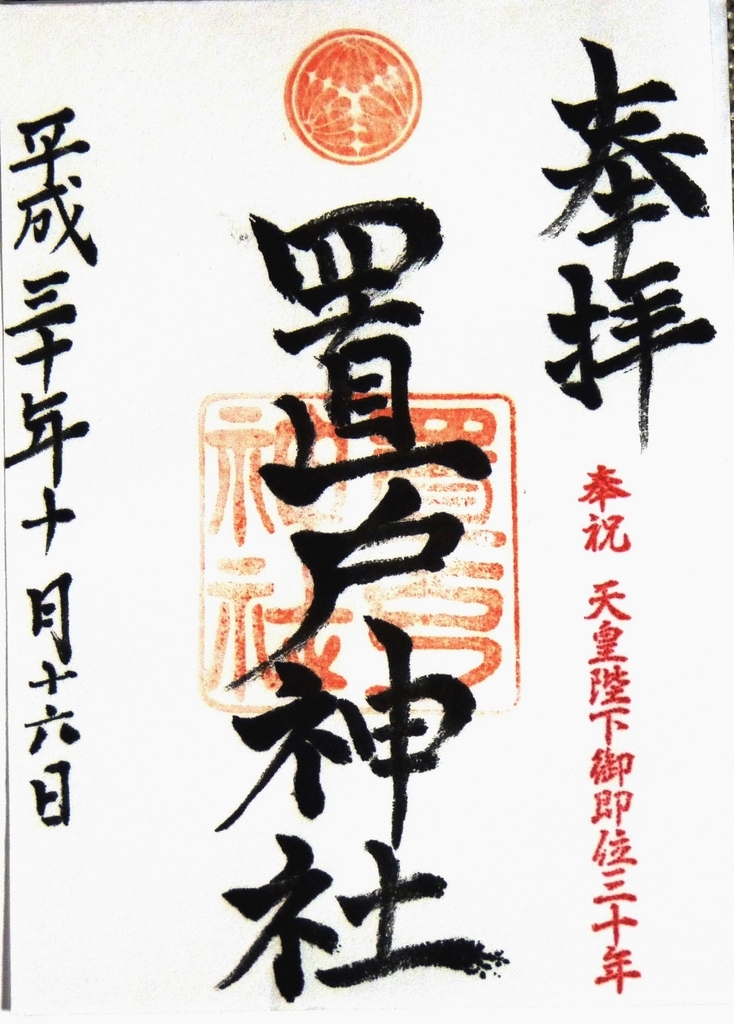 奉拝
奉祝 天皇陛下御即位三十年
置戸神社
置戸神社
平成三十年十月十六日